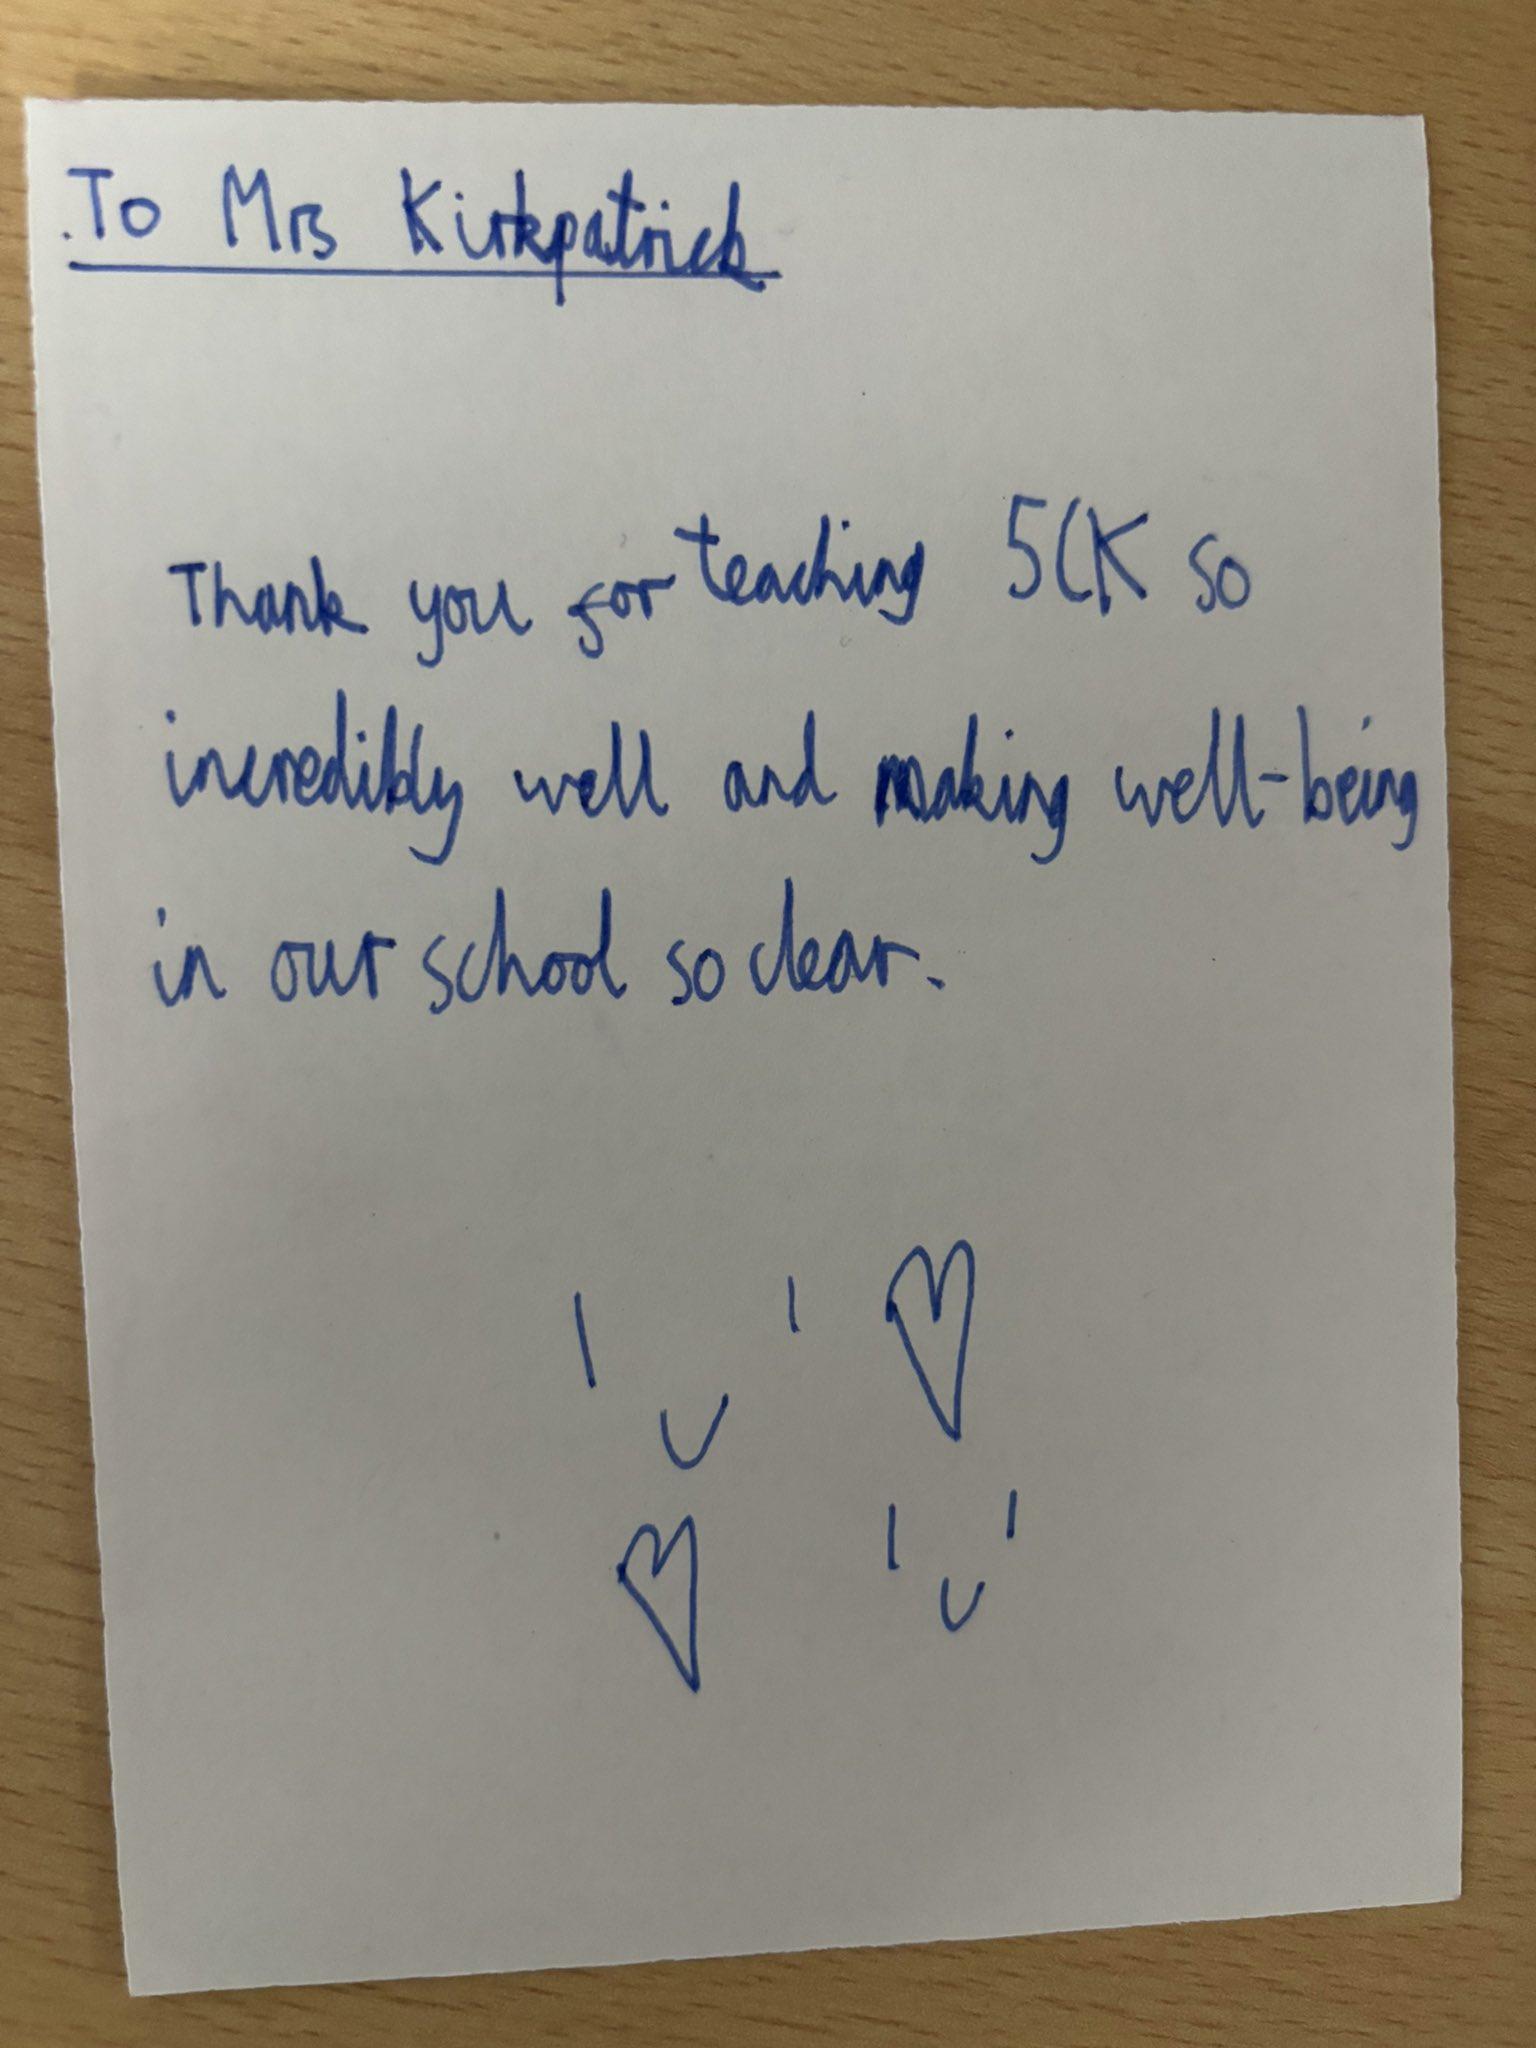 To Mrs Kirkpatrick
Thank you for teaching 5CK so
incredibly well and making well-being
in our school so clear.